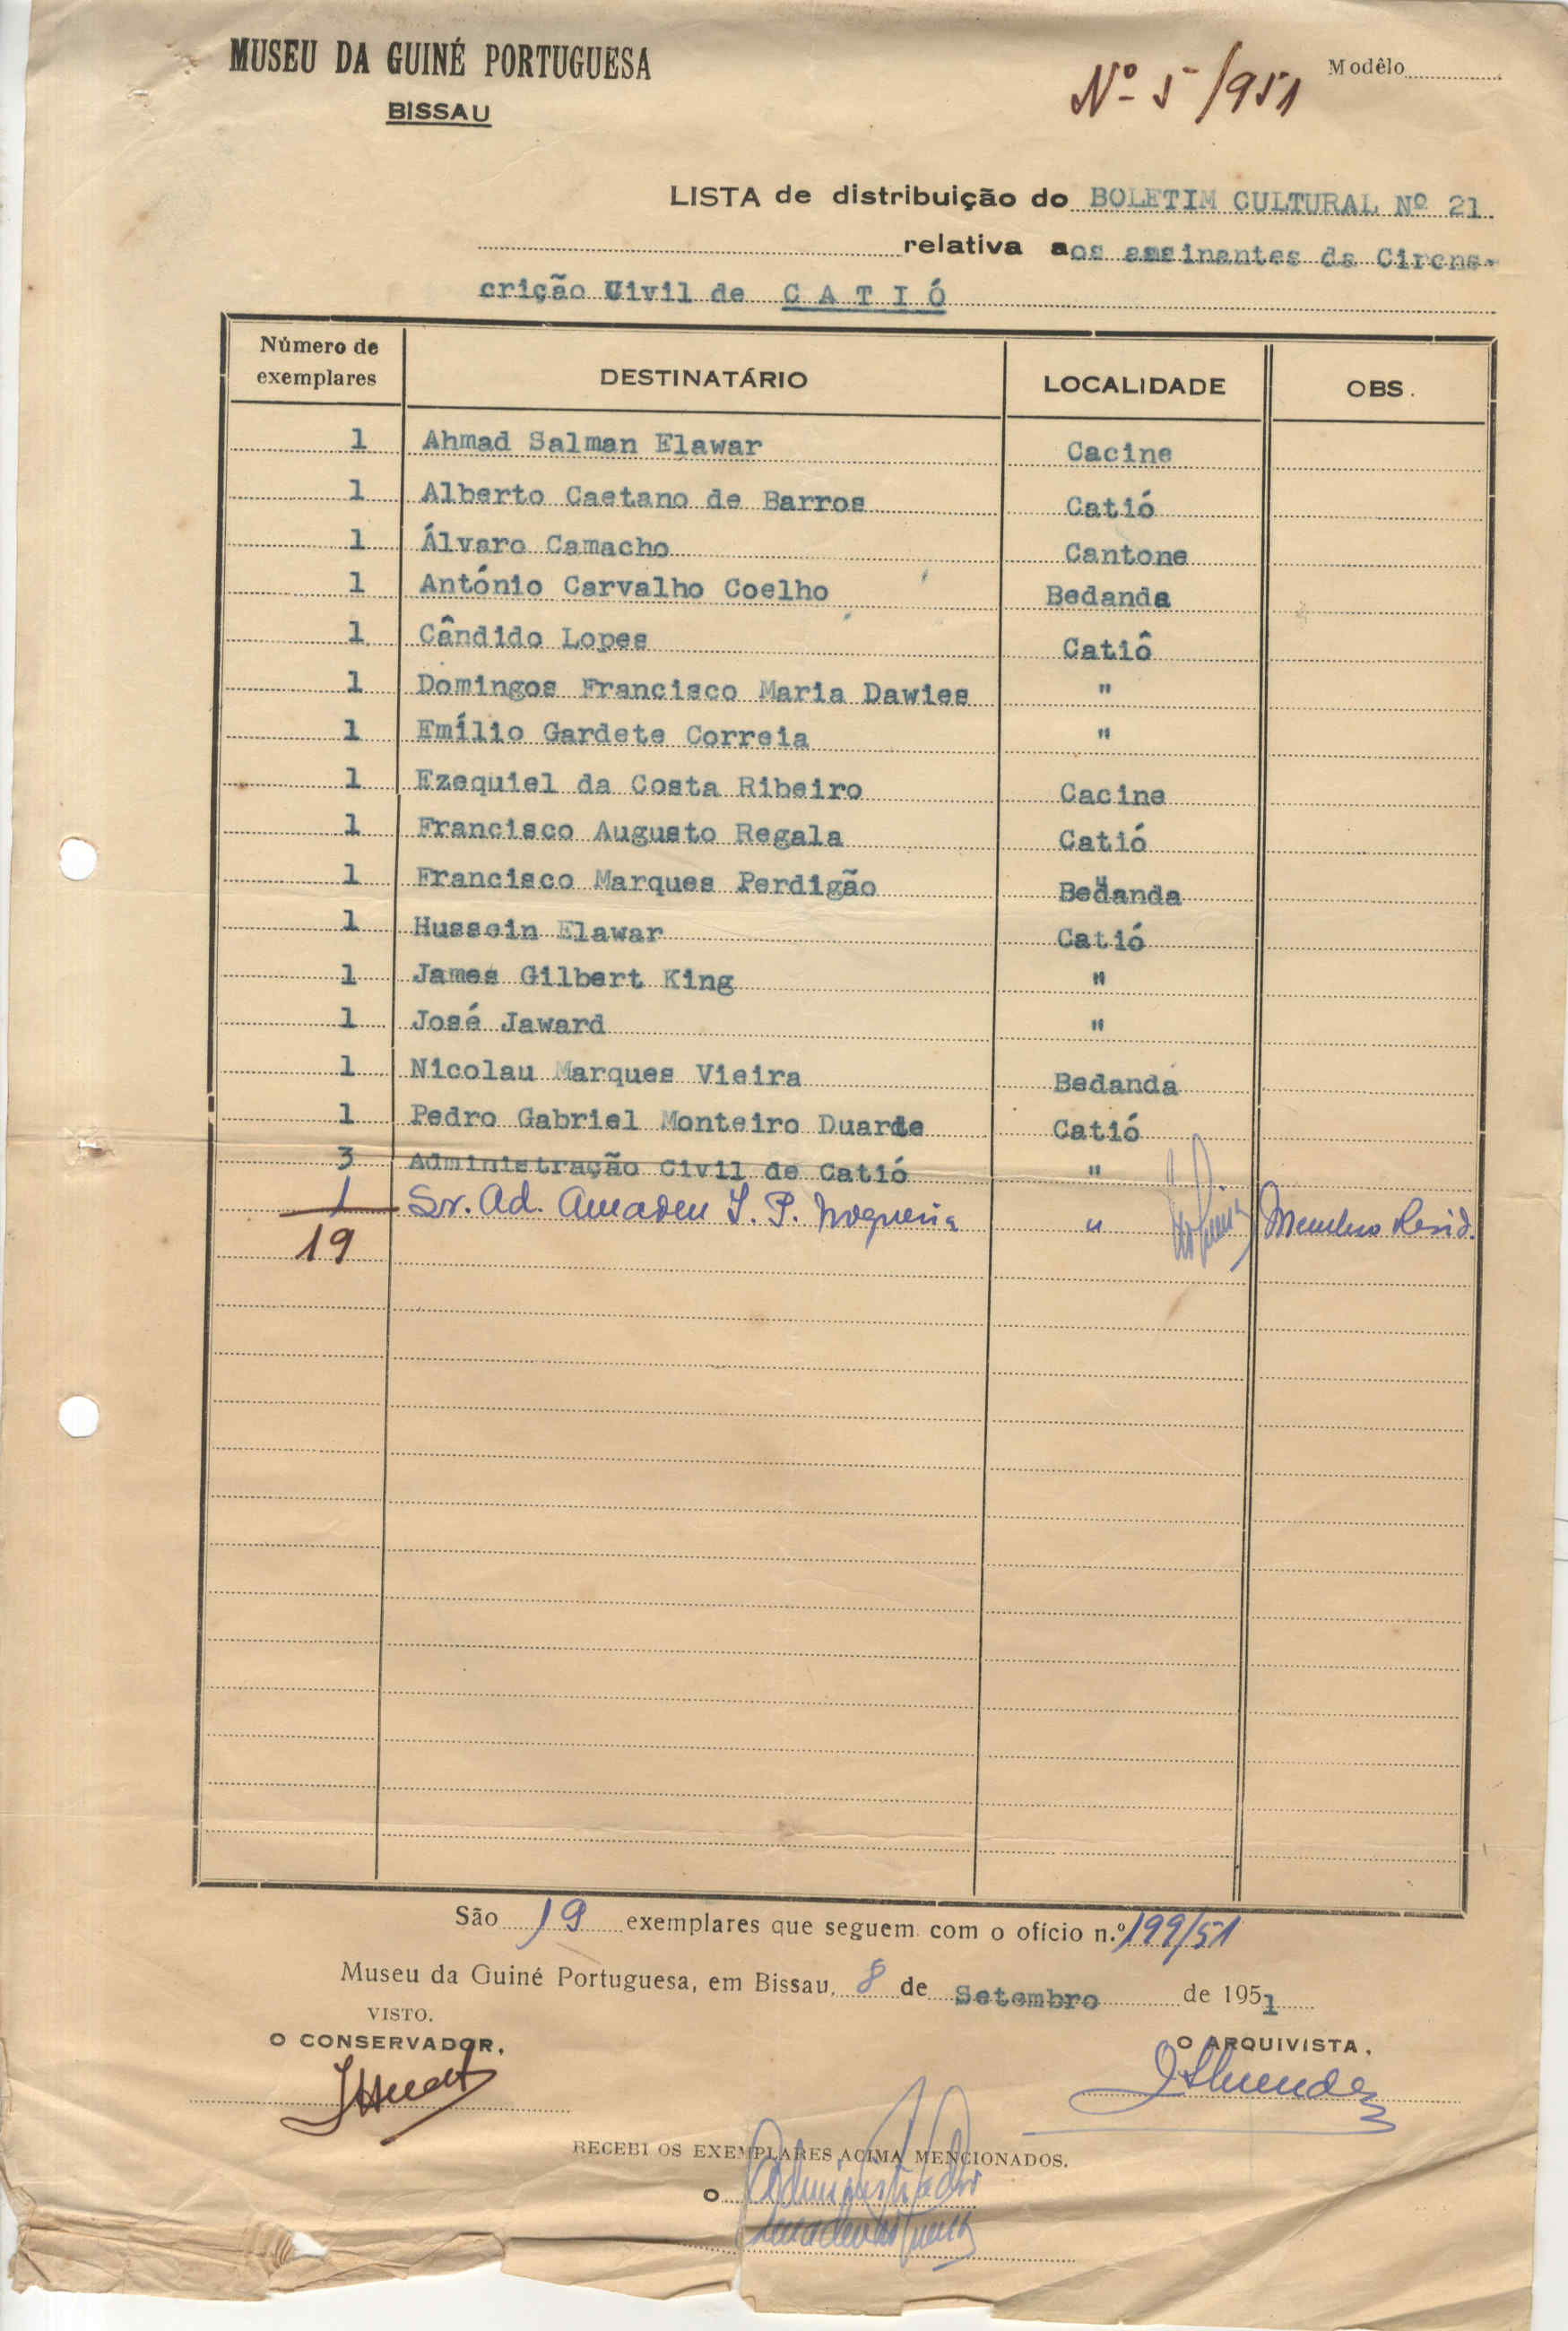 MUSEU DA GUINÉ PORTUGUESA
BISSAU
Modêlo
Nº 5/951
LISTA de distribuição do BOLETIM CULTURAL Nº 21
relativa aos assinantes da Circuns-
crição Civil de C A T I Ó
Número de exemplares DESTINATÁRIO LOCALIDADE OBS.
1 Ahmad Salman Elawar Cacine
1 Alberto Caetano de Barros Catió
1 Álvaro Camacho Cantone
1 António Carvalho Coelho Bedanda
1 Cândido Lopes Catiô
1 Domingos Francisco Maria Dawies "
1 Emílio Gardete Correia "
1 Ezequiel da Costa Ribeiro Cacine
1 Francisco Augusto Regala Catió
1 Francisco Marques Perdigão Bedanda
1 Hussein Elawar Catió
1 James Gilbert King "
1 José Jaward "
1 Nicolau Marques Vieira Bedanda
1 Pedro Gabriel Monteiro Duarte Catió
3 Administração Civil de Catió "
1 Sr. Ad. Amadeu I. P. Nogueira " Membro Resid.
19
São 19 exemplares que seguem com o ofício n.º 199/51
Museu da Guiné Portuguesa, em Bissau, 8 de Setembro de 1951
VISTO.
O CONSERVADOR,
O ARQUIVISTA,
RECEBI OS EXEMPLARES ACIMA MENCIONADOS.
O Administrador